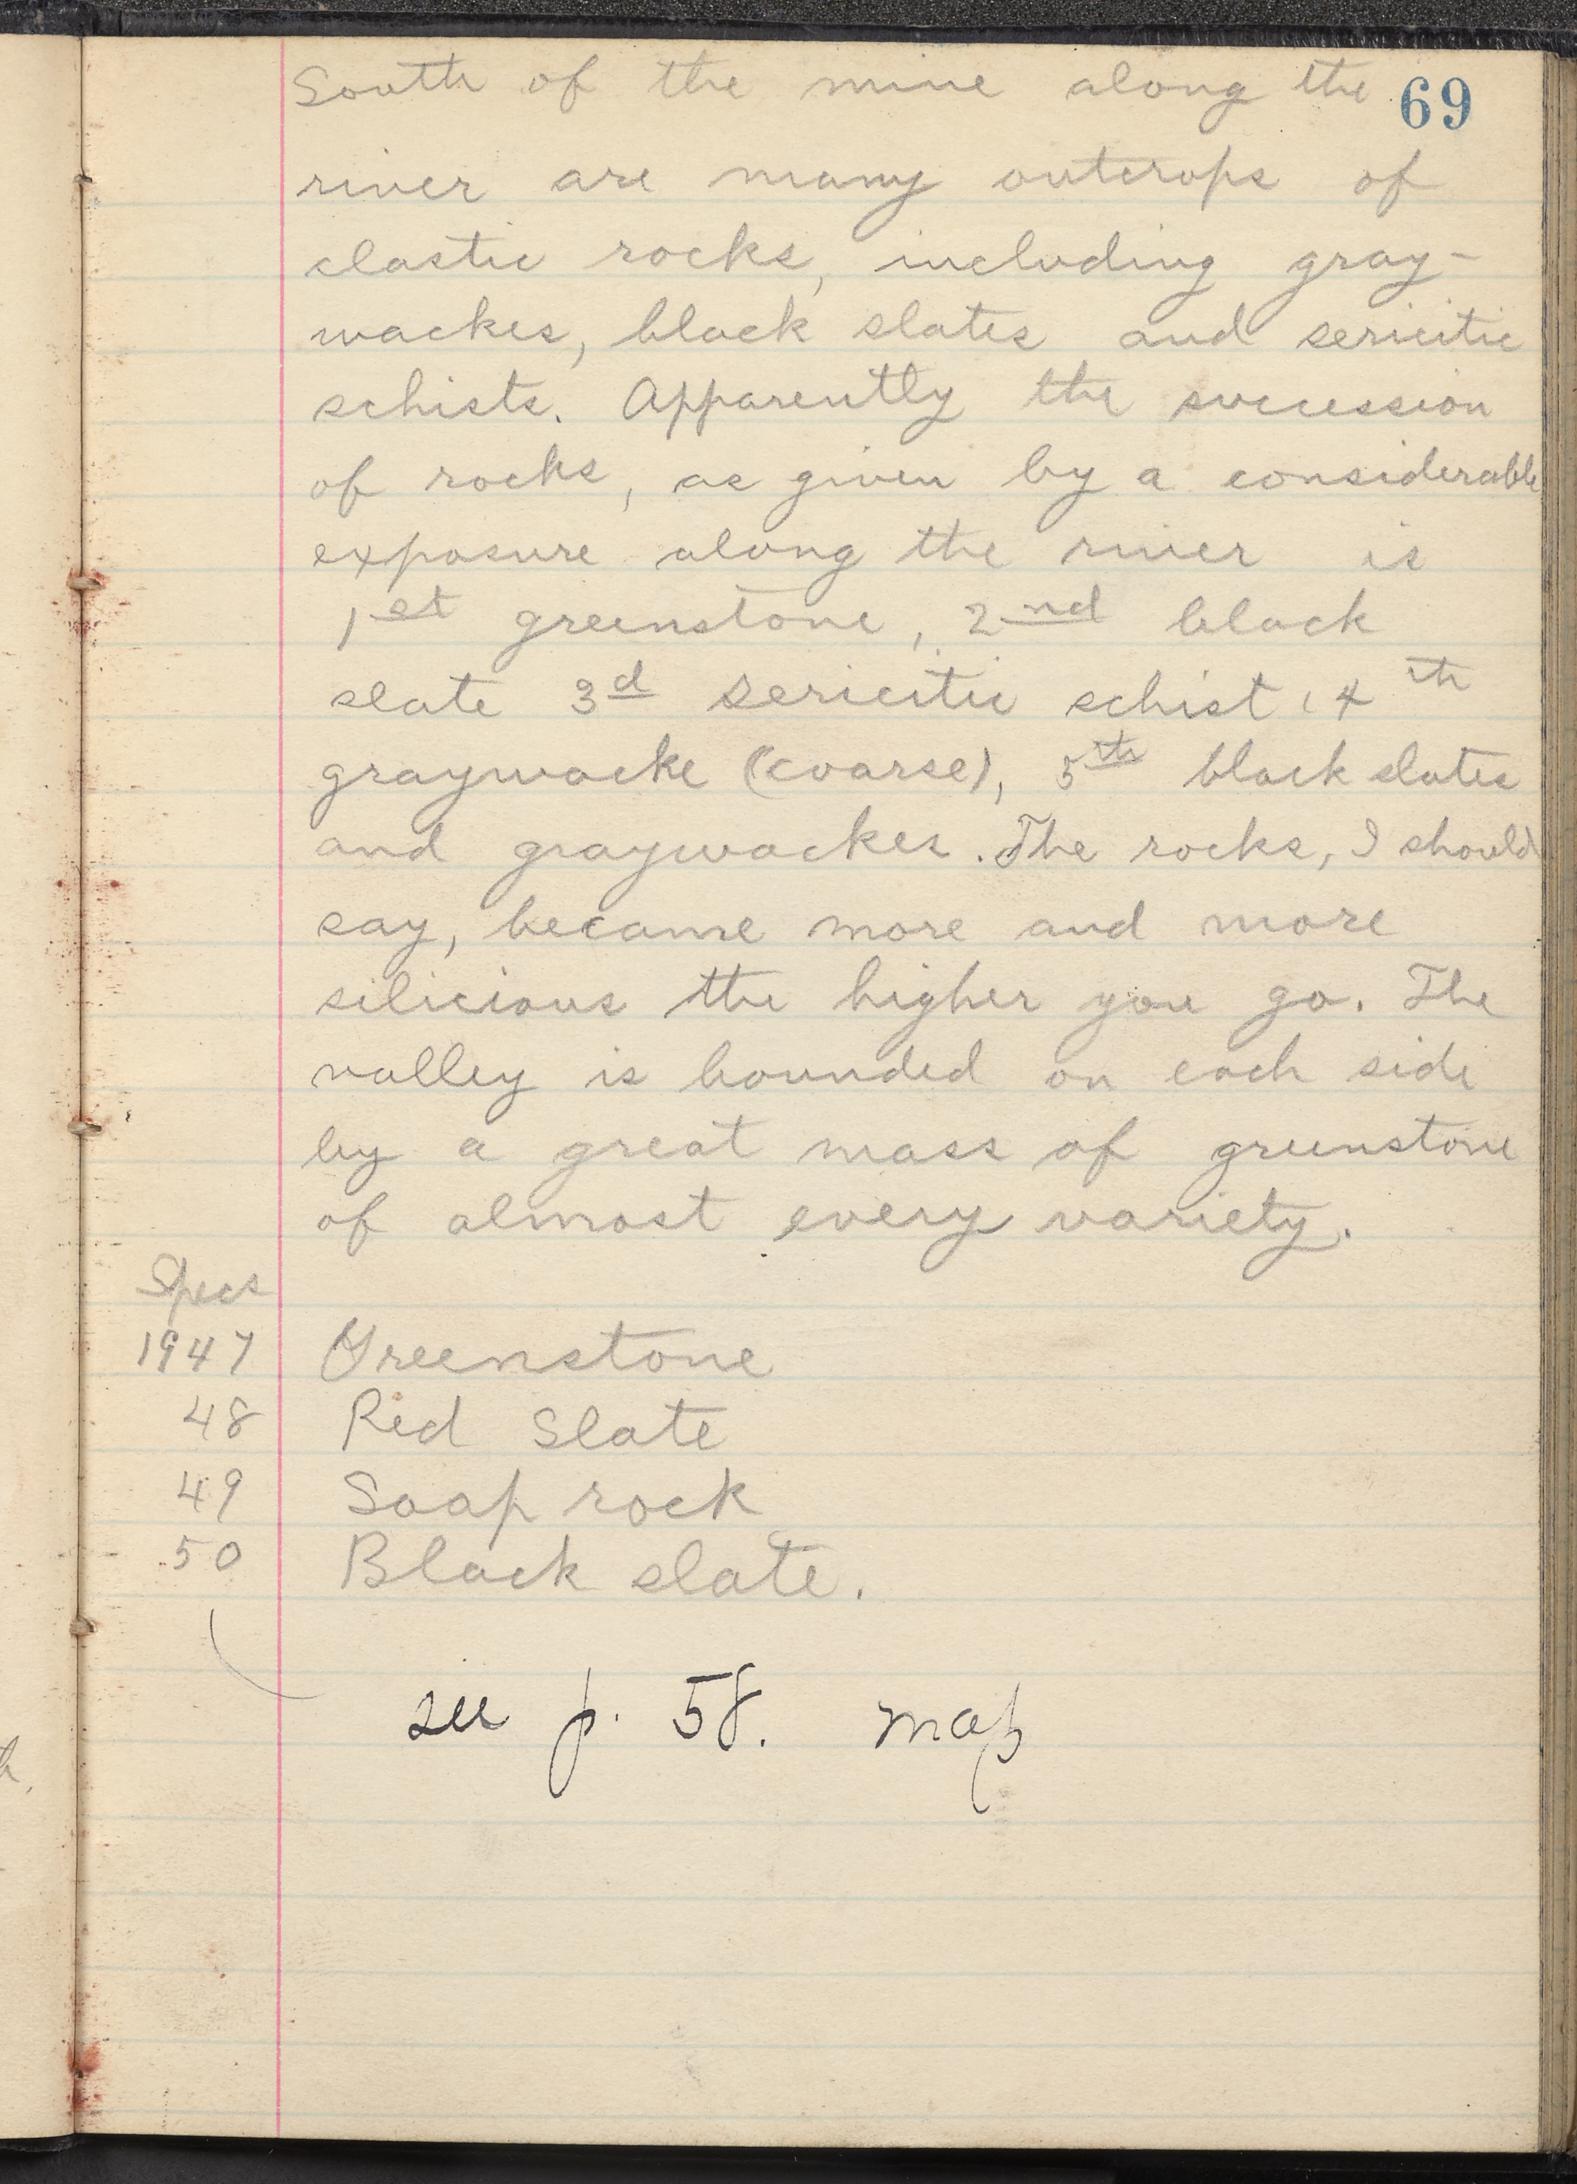 South of the mine along the 69
river are many outcrops of
clastic rocks, including gray-
wackes, black slates and sericitic
schists. Apparently the succession
of rocks, as given by a considerable
exposure along the river is
1st greenstone, 2nd black
slate 3d sericitic schist, 4th
graywacke (coarse), 5th black slates
and graywackes. The rocks, I should
say, became more and more
silicious the higher you go. The
valley is bounded on each side
by a great mass of greenstone
of almost every variety.
Specs
1947 Greenstone
48 Red Slate
49 Soap rock
50 Black slate.
see p. 58. map